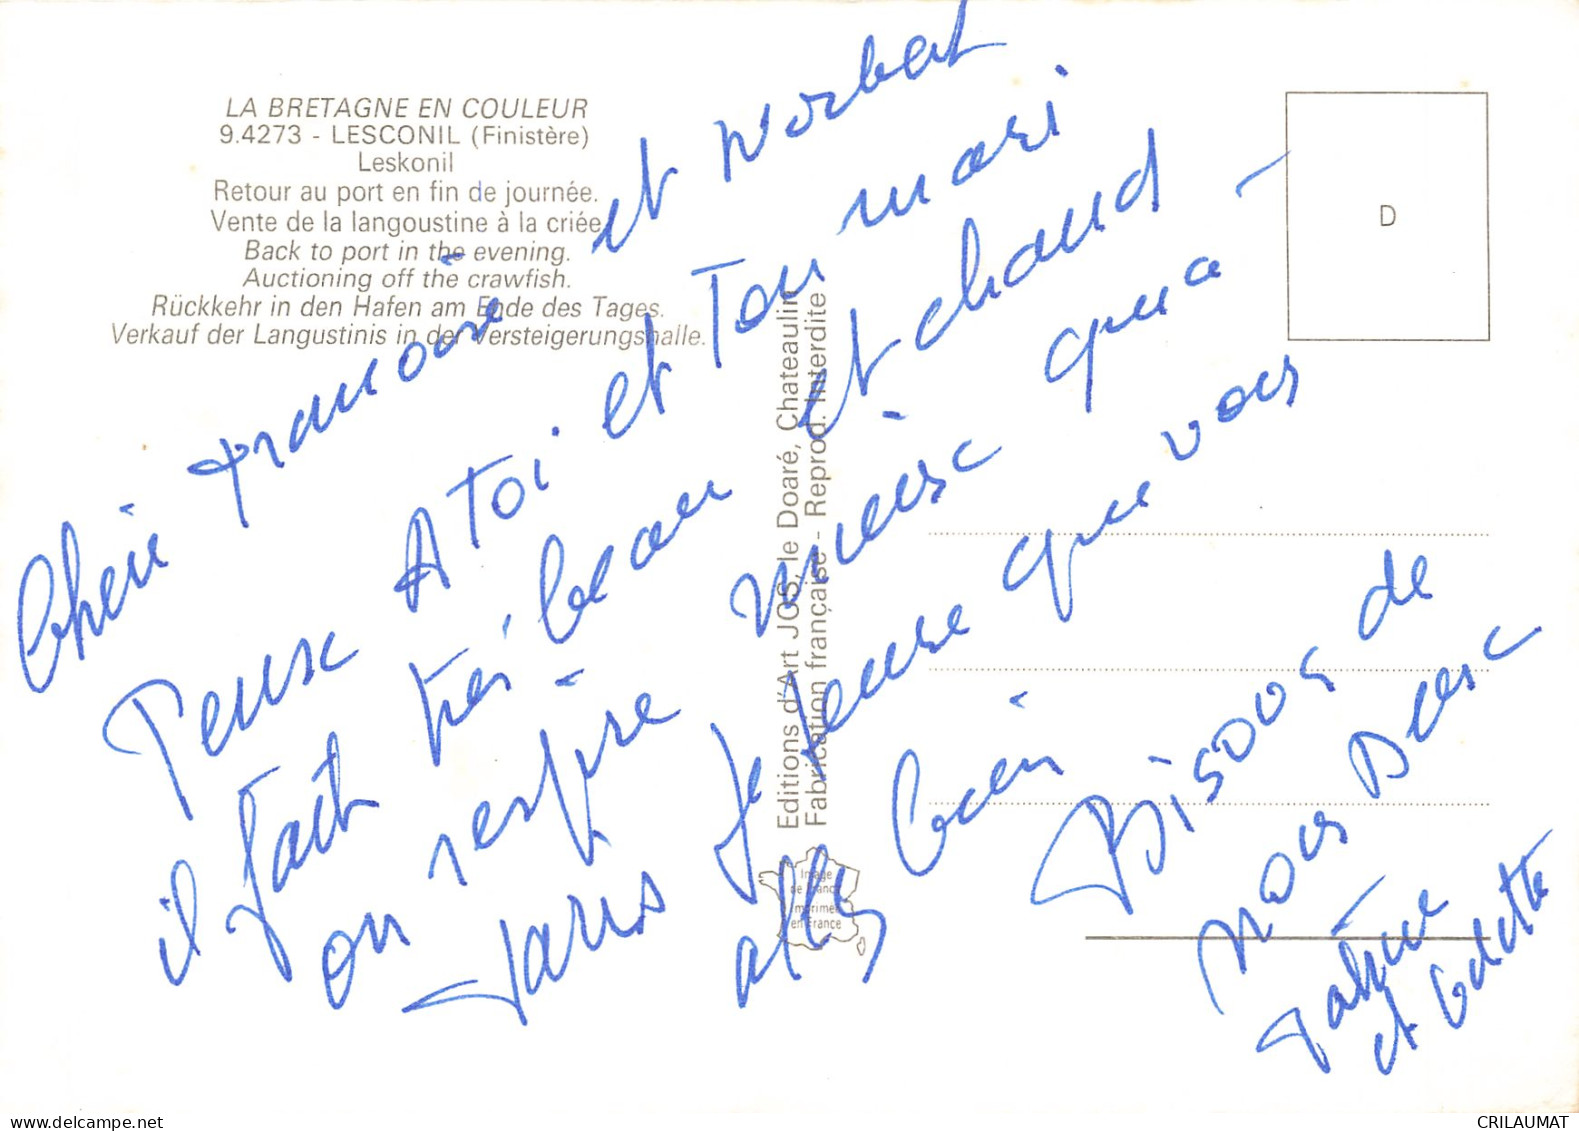 LA BRETAGNE EN COULEUR
9.4273 - LESCONIL (Finistère)
Leskonil
Retour au port en fin de journée.
Vente de la langoustine à la criée.
Back to port in the evening.
Auctioning off the crawfish.
Rückkehr in den Hafen am Ende des Tages.
Verkauf der Langustinis in der Versteigerungshalle.
D
Editions d'Art JOS, le Doaré, Chateaulin
Fabrication française - Reprod. Interdite
Image
de France
imprimée
en France
Cheri Francoise et Norbert
Pense A Toi et Ton mari
il fait trés beau et chaud -
on respire mieis qua -
Paris Je pense que vous
allez bien
Bisous de
nous Deux
et Odette
CRILAUMAT